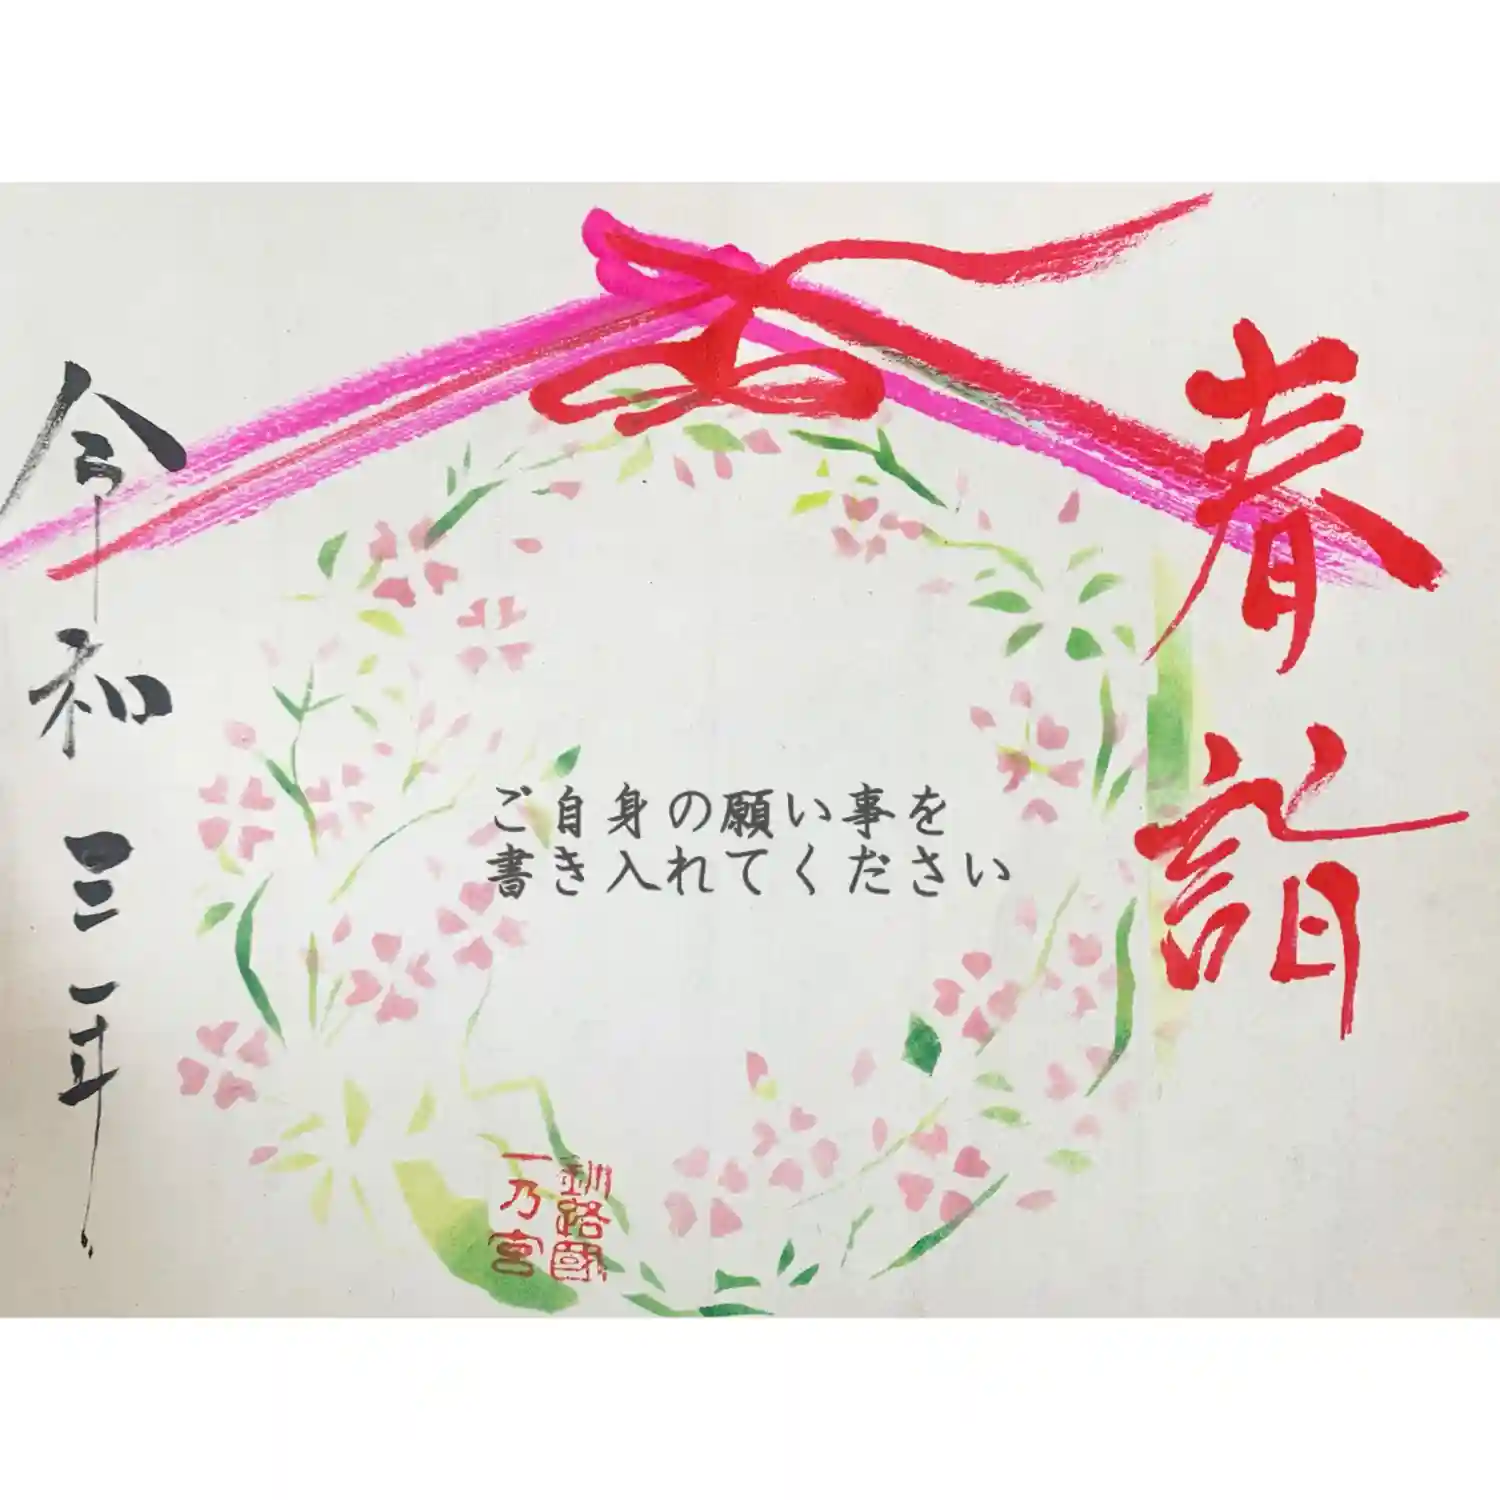 春詣
ご自身の願い事を
書き入れてください
釧路國
一乃宮
令和三年